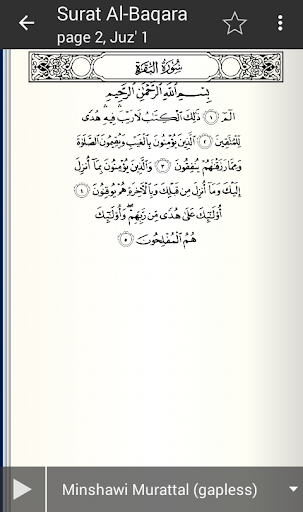 Surat Al-Baqara
page 2, Juz' 1
سُورَةُ البَقَرَةِ
بِسْمِ ٱللَّهِ ٱلرَّحْمَٰنِ ٱلرَّحِيمِ
الٓمٓ ١ ذَٰلِكَ ٱلْكِتَٰبُ لَا رَيْبَ فِيهِ هُدًى
لِّلْمُتَّقِينَ ٢ ٱلَّذِينَ يُؤْمِنُونَ بِٱلْغَيْبِ وَيُقِيمُونَ ٱلصَّلَوٰةَ
وَمِمَّا رَزَقْنَٰهُمْ يُنفِقُونَ ٣ وَٱلَّذِينَ يُؤْمِنُونَ بِمَآ أُنزِلَ
إِلَيْكَ وَمَآ أُنزِلَ مِن قَبْلِكَ وَبِٱلْأَخِرَةِ هُمْ يُوقِنُونَ ٤
أُو۟لَٰٓئِكَ عَلَىٰ هُدًى مِّن رَّبِّهِمْ ۖ وَأُو۟لَٰٓئِكَ
هُمُ ٱلْمُفْلِحُونَ ٥
Minshawi Murattal (gapless)